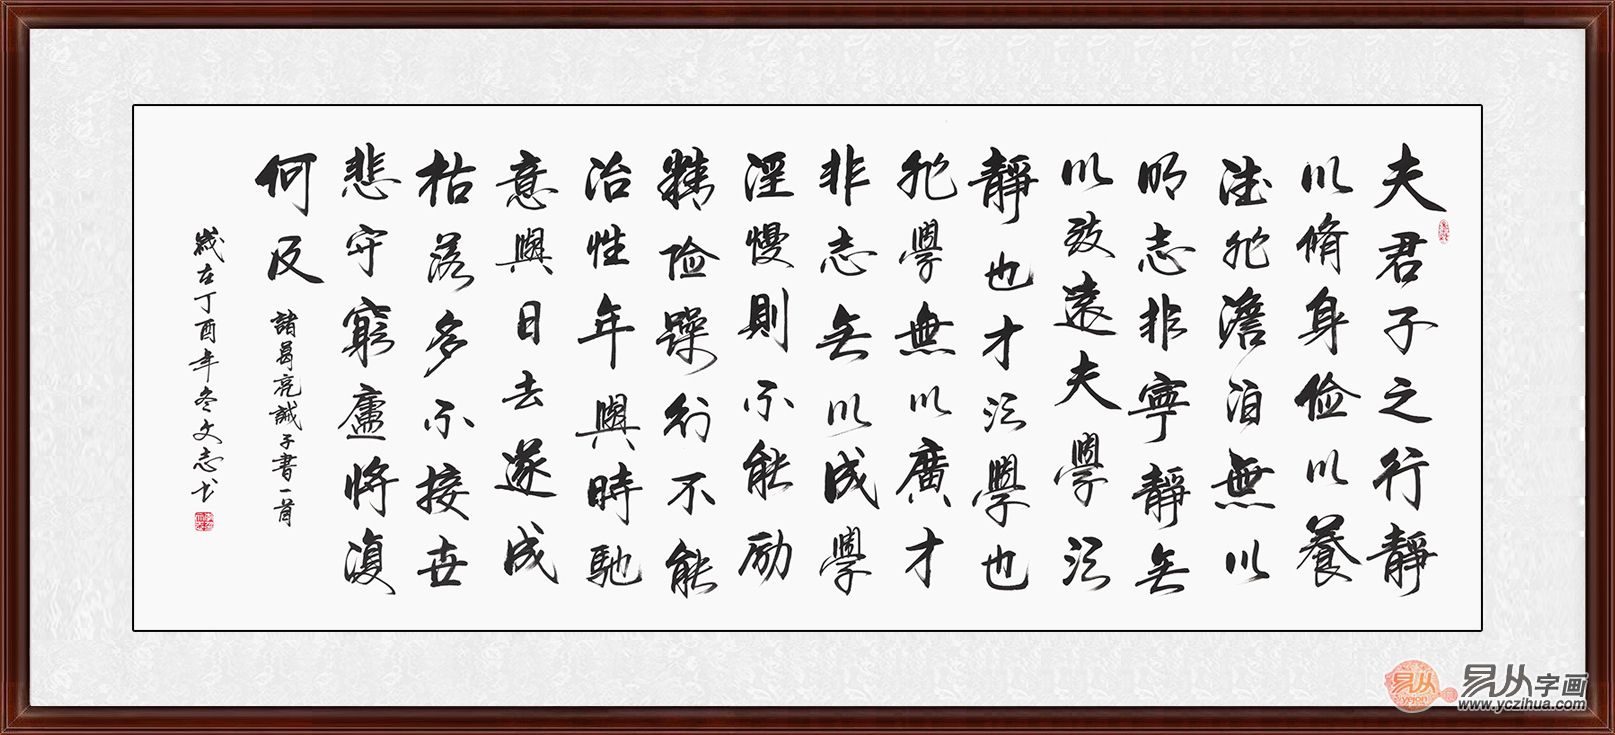 夫君子之行靜
以脩身俭以養
德非澹泊無以
明志非寧靜无
以致遠夫學須
靜也才須學也
非學無以廣才
非志无以成學
淫慢則不能励
精险躁則不能
冶性年與時馳
意與日去遂成
枯落多不接世
悲守窮廬將復
何及
諸葛亮誡子書一首
歲在丁酉年冬文志书
易从
yeion
易从字画
www.yczihua.com